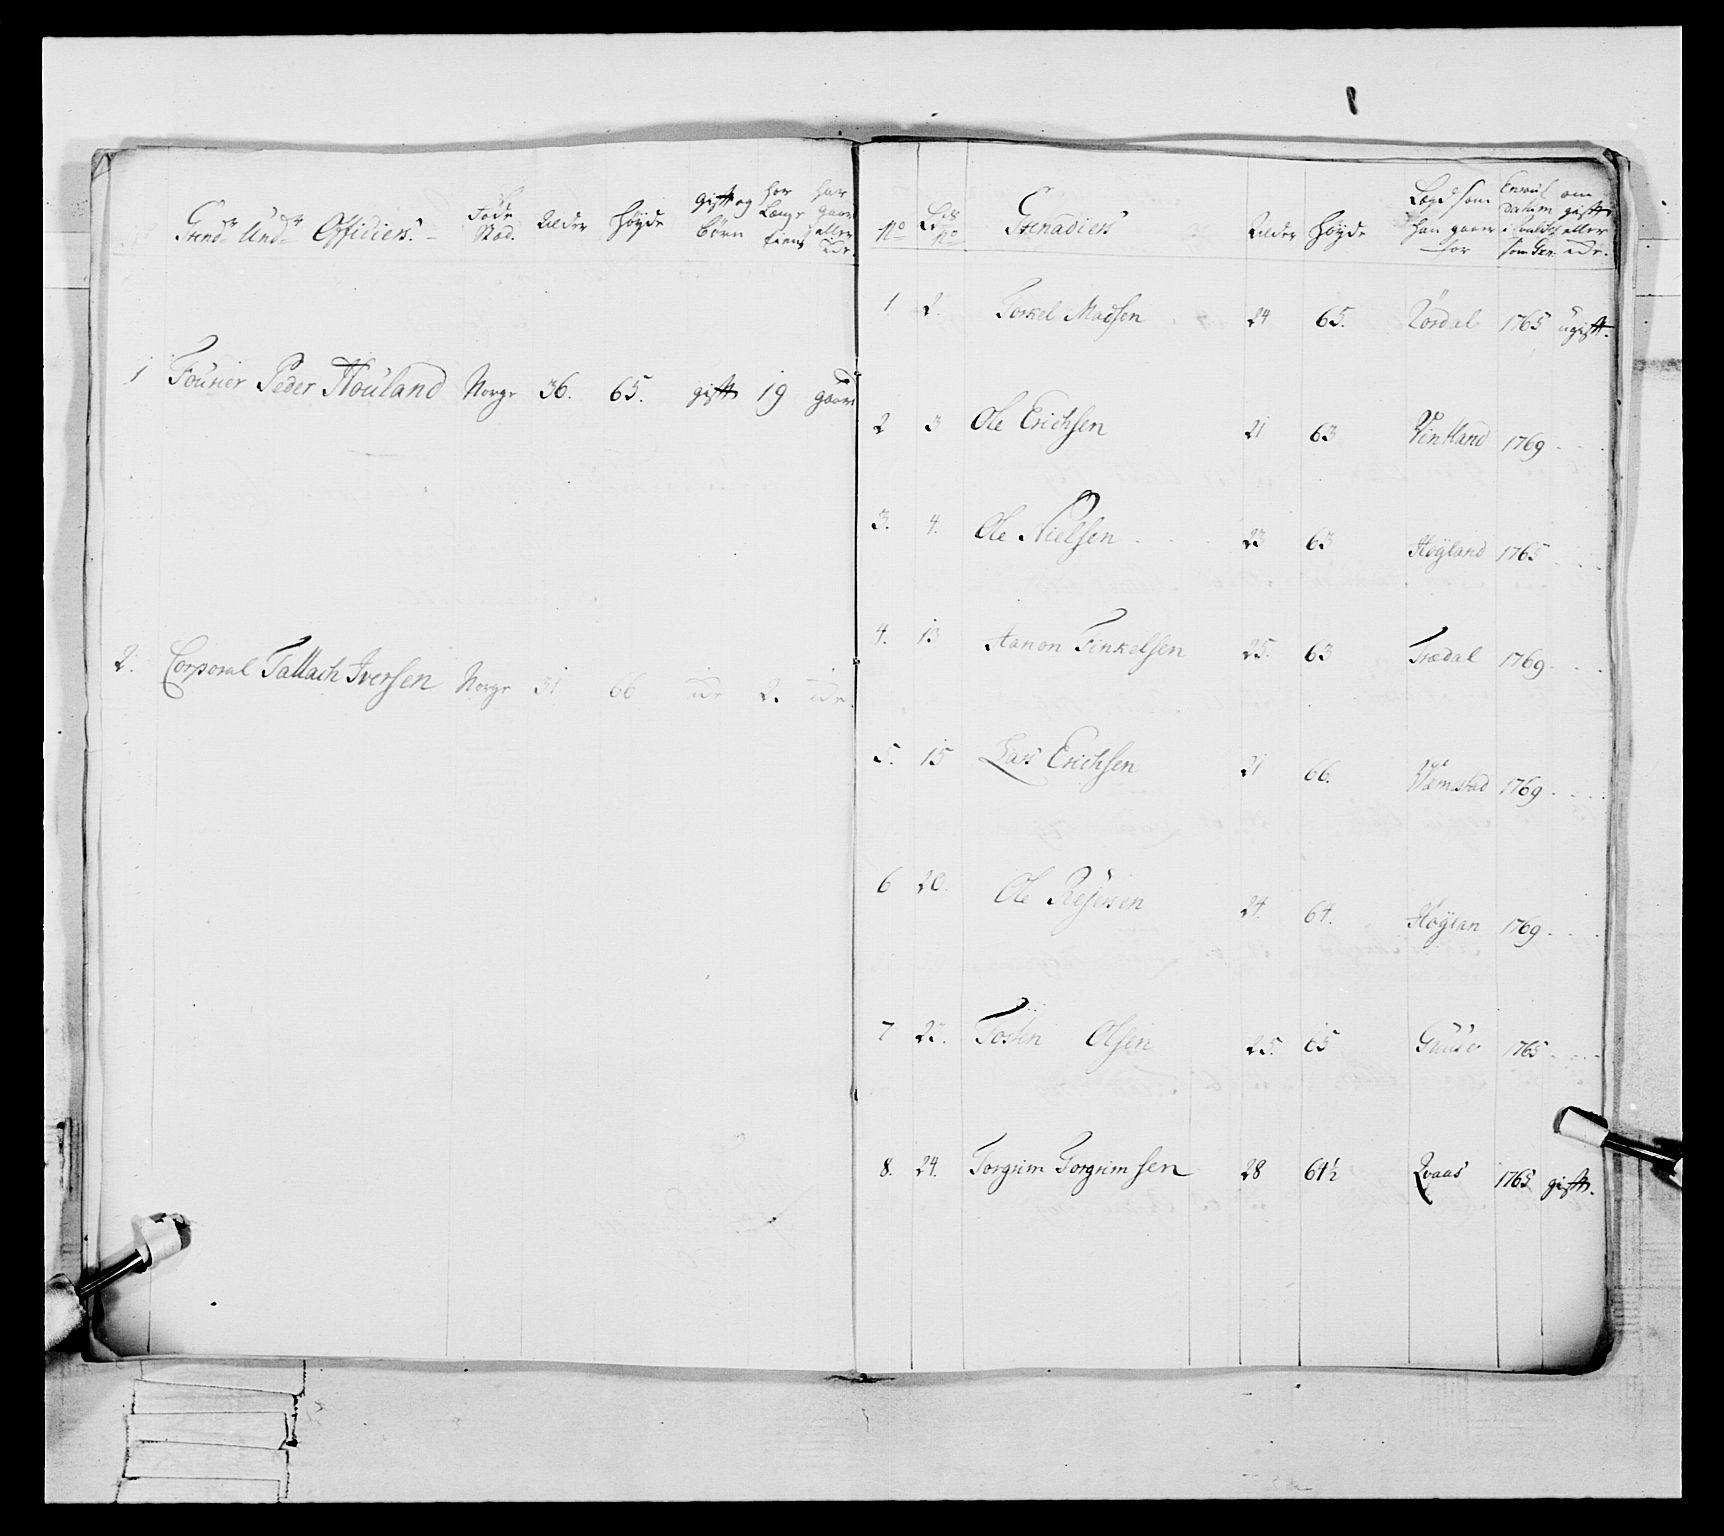 Grend. Und. Officiers.
Føde Stad.
Alder
Høyde
gift og børn
har Længe tient
har gaard eller Ede.
1 Fourier Peder Houland Norge 36. 65. gift 19 gaard
2. Corporal Tallach Iversen Norge 31 66 ide 2. ide.
No
Grenadiers
Alder
Høyde
Lægd som han gaar for
om gift eller ide.
1 2. Torkel Madsen 24 65. Nordal 1765 ugift.
2 3 Ole Erichsen 21 63 Vintland 1769 - - -
3. 4. Ole Nielsen 23 63 Høyland 1765 - - -
4. 13 Aanon Tinkelsen 25. 63 Trædal 1769 - - -
5. 15 Lars Erichsen 21 66. Væmestad 1769 - - -
6 20. Ole Rejersen 24. 64. Høylan 1769 - - -
7 23. Tosten Olsen 25. 65 1765 - - -
8. 24. Torgrim Torgrimsen 28 64½ Qvaas 1765 gift.